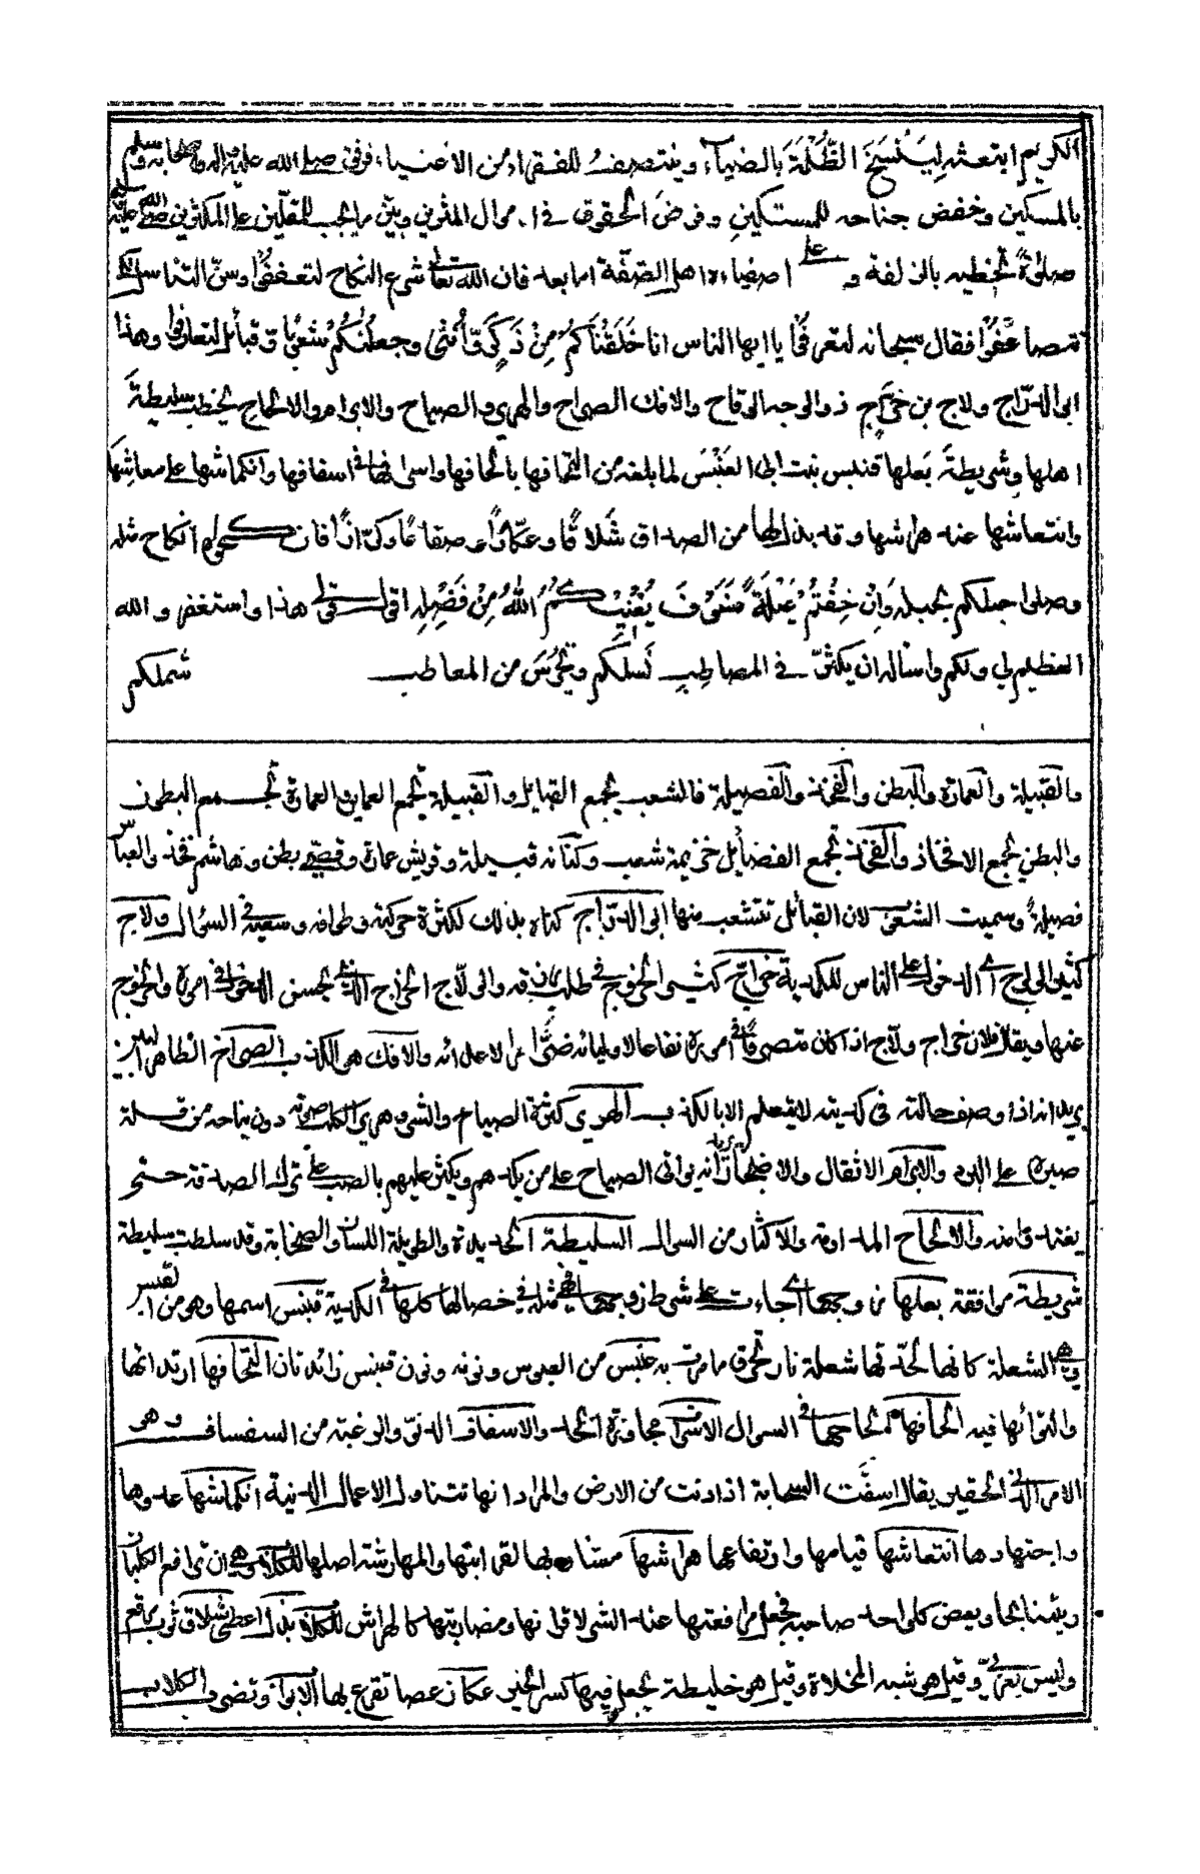 الكريم ابتعثه لِيَنْسَخَ الظُّلْمَةَ بالضياء وينتصف للفقراء من الاغنياء فرفق صلى الله عليه واله وصحابه وسلم
بالمسكين وخفض جناحه للمستكين وفرض الحقوق في اموال المثرين وبيّن ما يجب للمقلّين على المكثرين صلى الله عليه
صلوة تحظيه بالزلفة و على اصفياءه اهل الصفّة اما بعد فان الله تعالى شرع النكاح لتعففوا وسنّ التناسل لكى
تتضاعفوا فقال سبحانه لتعرفوا يا ايها الناس انا خَلَقْنَاكُم مِنْ ذَكَرٍ وَّأُنثى وجعلنٰكُمْ شعوبا وقبائل لتعارفوا وهذا
ابو الدرّاج ولاج بن خرّاج ذو الوجه الوقاح والافك الصراح والهرير والصياح والابرام والالحاح يخطب سليطةَ
اهلها وشريطةَ بَعلها قنبس بنت ابى العَنْبَس لما بلغه من التحافها بالحافها واسرافها في اسفافها وانكماشها على معاشِها
وانتعاشها عند هراشها وقد بذل لها من الصداق شَلاقًا وعكّازًا وصقاعًا وكرّازًا فانكحوه انكاح مثله
وصلوا حبلكم بحبله وَاِنْ خِفْتُمْ عَيْلَةً فَسَوْفَ يُغْنِيكُمُ اللهُ مِنْ فَضْلِهِ اقول قولى هذا واستغفر والله
العظيم لي ولكم واسأله ان يكثّر في المصاطِب نَسلكم ويَحْرُسَ من المعاطب شملكم
والقبيلة والعمارة والبطن والفخذ والفصيلة فالشعب يجمع القبايل والقبيلة تجمع العماير والعمارة تجمع البطون
والبطن يجمع الافخاذ والفخذ تجمع الفضائل خزيمة شعب وكنانه قبيلة وقريش عمارة وقصي بطن وهاشم فخذ والعباس
فصيلة وسميت الشعوب لان القبائل تتشعب منها ابى الدرّاج كناه بذلك لكثرة حركته وطوافه وسعيه في السؤال ولاج
كثير الولوج اى الدخول على الناس للكدية خراج كثير الخروج في طلب رزقه والولّاج الخراج الذي يحسن الدخول في امره والخروج
عنها ويقال فلان خراج ولاج اذا كان متصرفا في اموره نفاعا لاوليائه ضرّارا لاعدائه والافك هو الكذب الصراح الظاهر البين
يريد انه اذا وصف حالته في كديته لا يتعلم الا بالكذب الهرير كثرة الصياح والشر وهرير الكلب صوته دون نباحه من قلة
صبره على البرد والابرام الاثقال والاضجار يريد انه يوالى الصياح على من يكدهم ويكثر عليهم بالصب على ترك الصدقة حتى
يفتدى منه والالحاح المداومة والاكثار من السوال السليطة الحديدة والطويلة اللسان والصخابة وقد سلطت سليطة
شريطة موافقة بعلها زوجها اى جاءت على شرط زوجها فهي مثله في خصالها كلها في الكدية قنبس اسمها وهو من القبس
وهو الشعلة كانها لحدّتها شعلة نار تحرق ما مرت به عنبس من العبوس ونونه ونون قنبس زائدتان التحافها ارتدائها
والتوائها فيه الحافها لحاحها في السوال الاسراف مجاوزة الحد والاسفاف الدنوّ والرغبة من السفساف وهو
الامر الدني الحقير يقال اسفّت السحابة اذا دنت من الارض والمراد انها تتناول الاعمال الدنية انكماشها عدوها
واجتهادها انتعاشها قيامها وارتفاعها هراشها مشاربها لقرابتها والمهارشة اصلها للكلاب وهي ان ترافع الكلبان
ويتنابحا ويعض كل واحد صاحبه فجعل مرافعتها عند الشر لاقرانها ومضاربتها كالهراش للكلاب بذل اعطى شلاق ثوب مرقع
وليس بعربيّ وقيل هو شبه المخلاة وقيل هو خليطة يجعل فيها كسر الخبز عكاز عصا تقرع بها الابواب وتضرب الكلاب